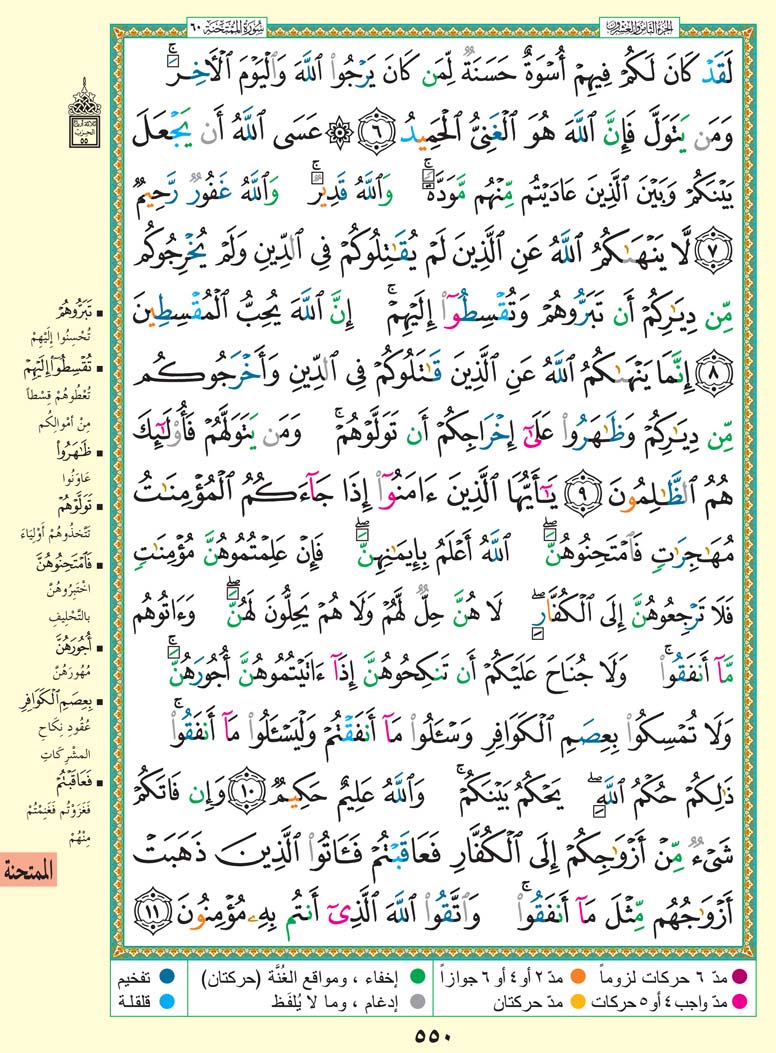 الجزء الثامن والعشرون
سُورَةُ المُمْتَحنَة ٦٠
لَّقَدْ كَانَ لَكُمْ فِيهِمْ أُسْوَةٌ حَسَنَةٌ لِّمَن كَانَ يَرْجُوا۟ ٱللَّهَ وَٱلْيَوْمَ ٱلْـَٔاخِرَ ۚ
وَمَن يَتَوَلَّ فَإِنَّ ٱللَّهَ هُوَ ٱلْغَنِىُّ ٱلْحَمِيدُ ٦ ۞ عَسَى ٱللَّهُ أَن يَجْعَلَ
بَيْنَكُمْ وَبَيْنَ ٱلَّذِينَ عَادَيْتُم مِّنْهُم مَّوَدَّةً ۚ وَٱللَّهُ قَدِيرٌ ۚ وَٱللَّهُ غَفُورٌ رَّحِيمٌ
٧ لَّا يَنْهَىٰكُمُ ٱللَّهُ عَنِ ٱلَّذِينَ لَمْ يُقَٰتِلُوكُمْ فِى ٱلدِّينِ وَلَمْ يُخْرِجُوكُم
مِّن دِيَٰرِكُمْ أَن تَبَرُّوهُمْ وَتُقْسِطُوٓا۟ إِلَيْهِمْ ۚ إِنَّ ٱللَّهَ يُحِبُّ ٱلْمُقْسِطِينَ
٨ إِنَّمَا يَنْهَىٰكُمُ ٱللَّهُ عَنِ ٱلَّذِينَ قَٰتَلُوكُمْ فِى ٱلدِّينِ وَأَخْرَجُوكُم
مِّن دِيَٰرِكُمْ وَظَٰهَرُوا۟ عَلَىٰٓ إِخْرَاجِكُمْ أَن تَوَلَّوْهُمْ ۚ وَمَن يَتَوَلَّهُمْ فَأُو۟لَٰٓئِكَ
هُمُ ٱلظَّٰلِمُونَ ٩ يَٰٓأَيُّهَا ٱلَّذِينَ ءَامَنُوٓا۟ إِذَا جَآءَكُمُ ٱلْمُؤْمِنَٰتُ
مُهَٰجِرَٰتٍ فَٱمْتَحِنُوهُنَّ ۖ ٱللَّهُ أَعْلَمُ بِإِيمَٰنِهِنَّ ۖ فَإِنْ عَلِمْتُمُوهُنَّ مُؤْمِنَٰتٍ
فَلَا تَرْجِعُوهُنَّ إِلَى ٱلْكُفَّارِ ۖ لَا هُنَّ حِلٌّ لَّهُمْ وَلَا هُمْ يَحِلُّونَ لَهُنَّ ۖ وَءَاتُوهُم
مَّآ أَنفَقُوا۟ ۚ وَلَا جُنَاحَ عَلَيْكُمْ أَن تَنكِحُوهُنَّ إِذَآ ءَاتَيْتُمُوهُنَّ أُجُورَهُنَّ ۚ
وَلَا تُمْسِكُوا۟ بِعِصَمِ ٱلْكَوَافِرِ وَسْـَٔلُوا۟ مَآ أَنفَقْتُمْ وَلْيَسْـَٔلُوا۟ مَآ أَنفَقُوا۟ ۚ
ذَٰلِكُمْ حُكْمُ ٱللَّهِ ۖ يَحْكُمُ بَيْنَكُمْ ۚ وَٱللَّهُ عَلِيمٌ حَكِيمٌ ١٠ وَإِن فَاتَكُمْ
شَىْءٌ مِّنْ أَزْوَٰجِكُمْ إِلَى ٱلْكُفَّارِ فَعَاقَبْتُمْ فَـَٔاتُوا۟ ٱلَّذِينَ ذَهَبَتْ
أَزْوَٰجُهُم مِّثْلَ مَآ أَنفَقُوا۟ ۚ وَٱتَّقُوا۟ ٱللَّهَ ٱلَّذِىٓ أَنتُم بِهِۦ مُؤْمِنُونَ ١١
ثلاثة أرباع
الحزب
٥٥
▪ تَبَرُّوهُمْ
تُحْسِنُوا إِلَيْهِمْ
▪ تُقْسِطُوٓا۟ إِلَيْهِمْ
تُعْطُوهُمْ قِسْطاً
مِنْ أَمْوَالِكُم
▪ ظَٰهَرُوا۟
عَاوَنُوا
▪ تَوَلَّوْهُمْ
تَتَّخِذُوهُمْ أَوْلِيَاءَ
▪ فَٱمْتَحِنُوهُنَّ
اخْتَبِرُوهُنَّ
بالتَّحْلِيفِ
▪ أُجُورَهُنَّ
مُهُورَهُنَّ
▪ بِعِصَمِ ٱلْكَوَافِرِ
عُقُودِ نِكَاحِ
المشْرِكَاتِ
▪ فَعَاقَبْتُمْ
فَغَزَوْتُم فَغَنِمْتُمْ
مِنْهُمْ
الممتحنة
مدّ ٦ حركات لزوماً ● مدّ ٢ أو ٤ أو ٦ جوازاً
مدّ واجب ٤ أو ٥ حركات ● مدّ حركتان
إخفاء ، ومواقع الغُنَّة (حركتان) ● تفخيم
إدغام ، وما لا يُلفَظ ● قلقلة
٥٥٠